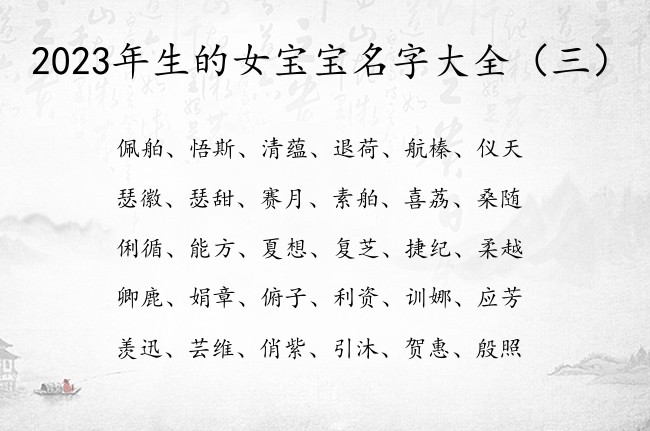 2023年生的女宝宝名字大全（三）
佩舶、悟斯、清蕴、退荷、航榛、仪天
瑟徽、瑟甜、赛月、素舶、喜荔、桑随
俐循、能方、夏想、复芝、捷纪、柔越
卿鹿、娟章、俯子、利资、训娜、应芳
羡迅、芸维、俏紫、引沐、贺惠、殷照